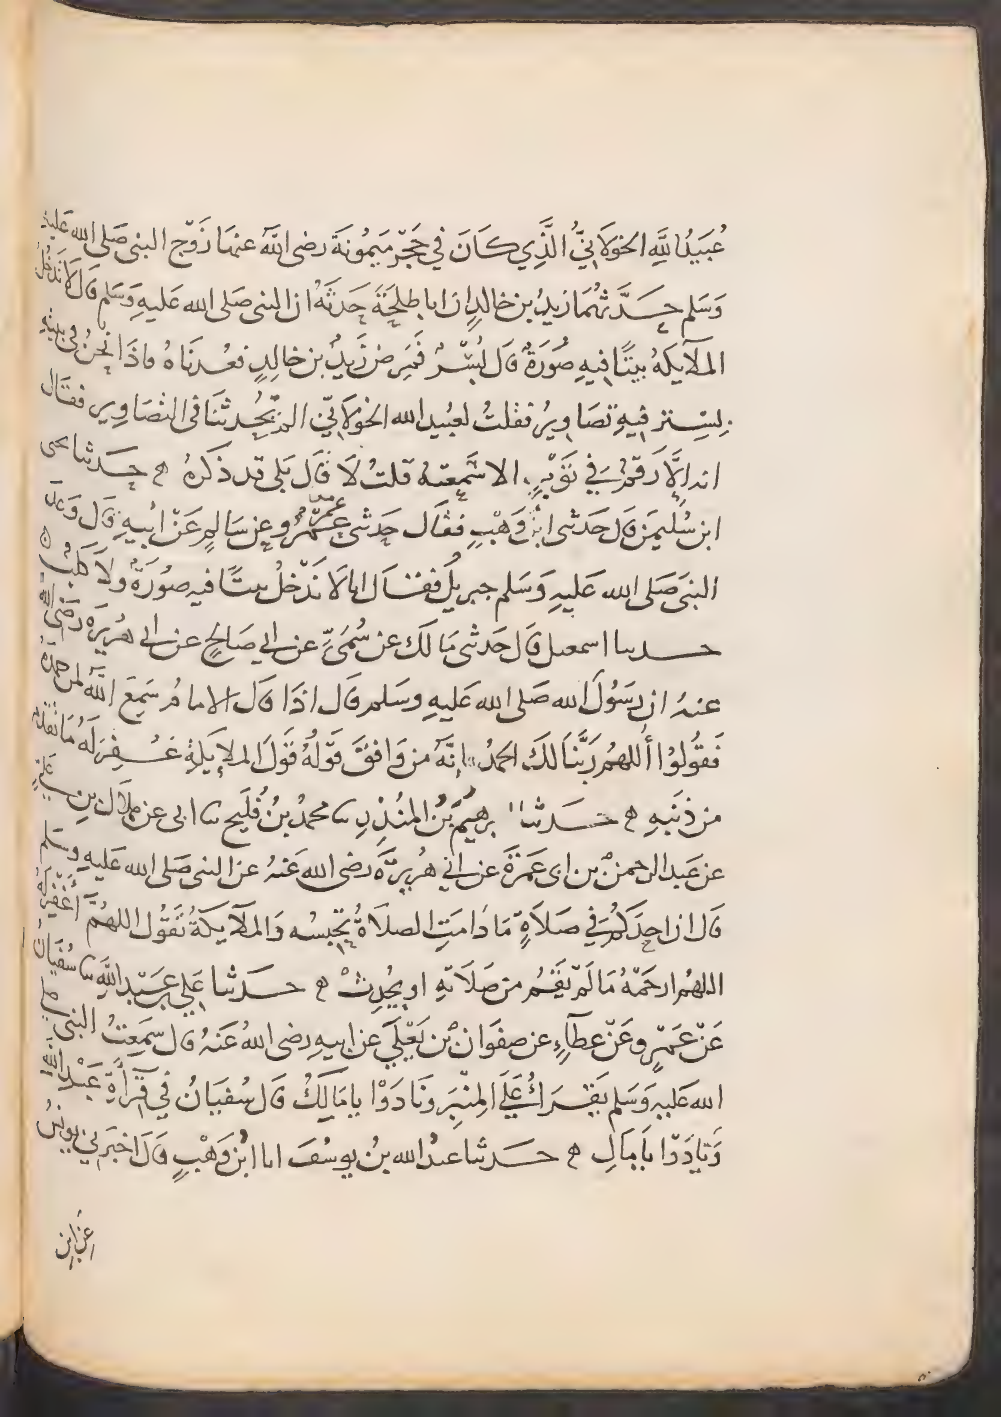 عُبَيدُ اللهِ الخولانيُّ الَّذِي كانَ في حَجْرِ مَيمُونَةَ رضى الله عنها زَوْج النبى صَلى الله عَليهِ
وَسَلم حَدَّثهُمَا زيدُ بن خالدٍ ان ابا طلحَةَ حَدثَهُ ان النبى صَلى الله عَليهِ وَسَلم قَال لَا تَدخُلُ
الملآيكةُ بيتًا فيهِ صُورَةٌ قال بُسْرٌ فَمَرِضَ زَيدُ بن خالدٍ فعُدنَاهُ فاذَا نحنُ في بيتِهِ
بِسِتر فيهِ تصَاويرُ فقلتُ لعُبيد الله الخولانيّ الم يُحدِثنَا فى التصَاوِير فقال
انه قال إلّا رَقْمٌ في ثَوْبٍ الا سَمِعته قلتُ لَا قَال بَلى قد ذكرهُ ه حدثنا يحى
ابن سُليمنَ قال حَدثنى ابنُ وَهْبٍ فقال حَدثنى عمرُ وعن سَالمٍ عَنْ ابيهِ قال وَعَدَ
النبىَ صَلى الله عَليهِ وَسَلم جبريلُ فقال انا لَا نَدْخلُ بيتًا فيه صُورَةٌ ولَا كَلبٌ ه
حدثنا اسمعيل قال حَدثنى مَالك عن سُمَيٍّ عن ابي صَالحٍ عن ابى هُرَيرَه رَضى الله
عنهُ ان رَسُولَ الله صَلى الله عَليهِ وسَلم قَال اذَا قَال الامامُ سَمِعَ اللهُ لمن حَمِدَهُ
فَقُولُوا أللهُم رَبَّنَا لكَ الحَمدُ فانهُ من وَافَقَ قَوْلُهُ قَولَ الملايكةِ غُفِرَ لَهُ مَا تقَدَّمَ
من ذنبِهِ ه حدثنا ابرهيمُ بنُ المُنذِرِ نا محمدُ بنُ فُليحٍ نا ابى عن هلَال بنِ عَليٍّ
عن عَبد الرحمن بن ابى عَمرَةَ عن ابي هُريرَةَ رضى الله عَنهُ عن النبى صَلى الله عَليهِ وسَلم
قَال ان احدَكُم في صَلَاةٍ مَا دَامَتِ الصلَاةُ تحبسُه وَالملَايكةُ تقُول اللهُمَّ أغْفِرْ لَهُ
اللهُم ارحَمْهُ مَا لَم يَقُم من صَلَاتهِ او يُحدِثْ ه حدثنا عَلي بن عَبْد اللهِ نا سُفيَانُ
عَنْ عَمْرٍ وعَنْ عطاءٍ عن صفوَان بن يَعْلَى عن ابيهِ رضى الله عَنهُ قال سَمِعتُ النبى صلى
الله عَليه وَسَلم يَقرَأ عَلَى المِنبَر ونَادَوْا يا مَالكُ قال سُفيَانُ في قِرَأةِ عَبْدِ اللهِ
وَنَادَوْا يَا مَالِ ه حدثنا عبدُ الله بنُ يوسُفَ انا ابنُ وَهْبٍ قال اخبَرني يونسُ
عَن ابن